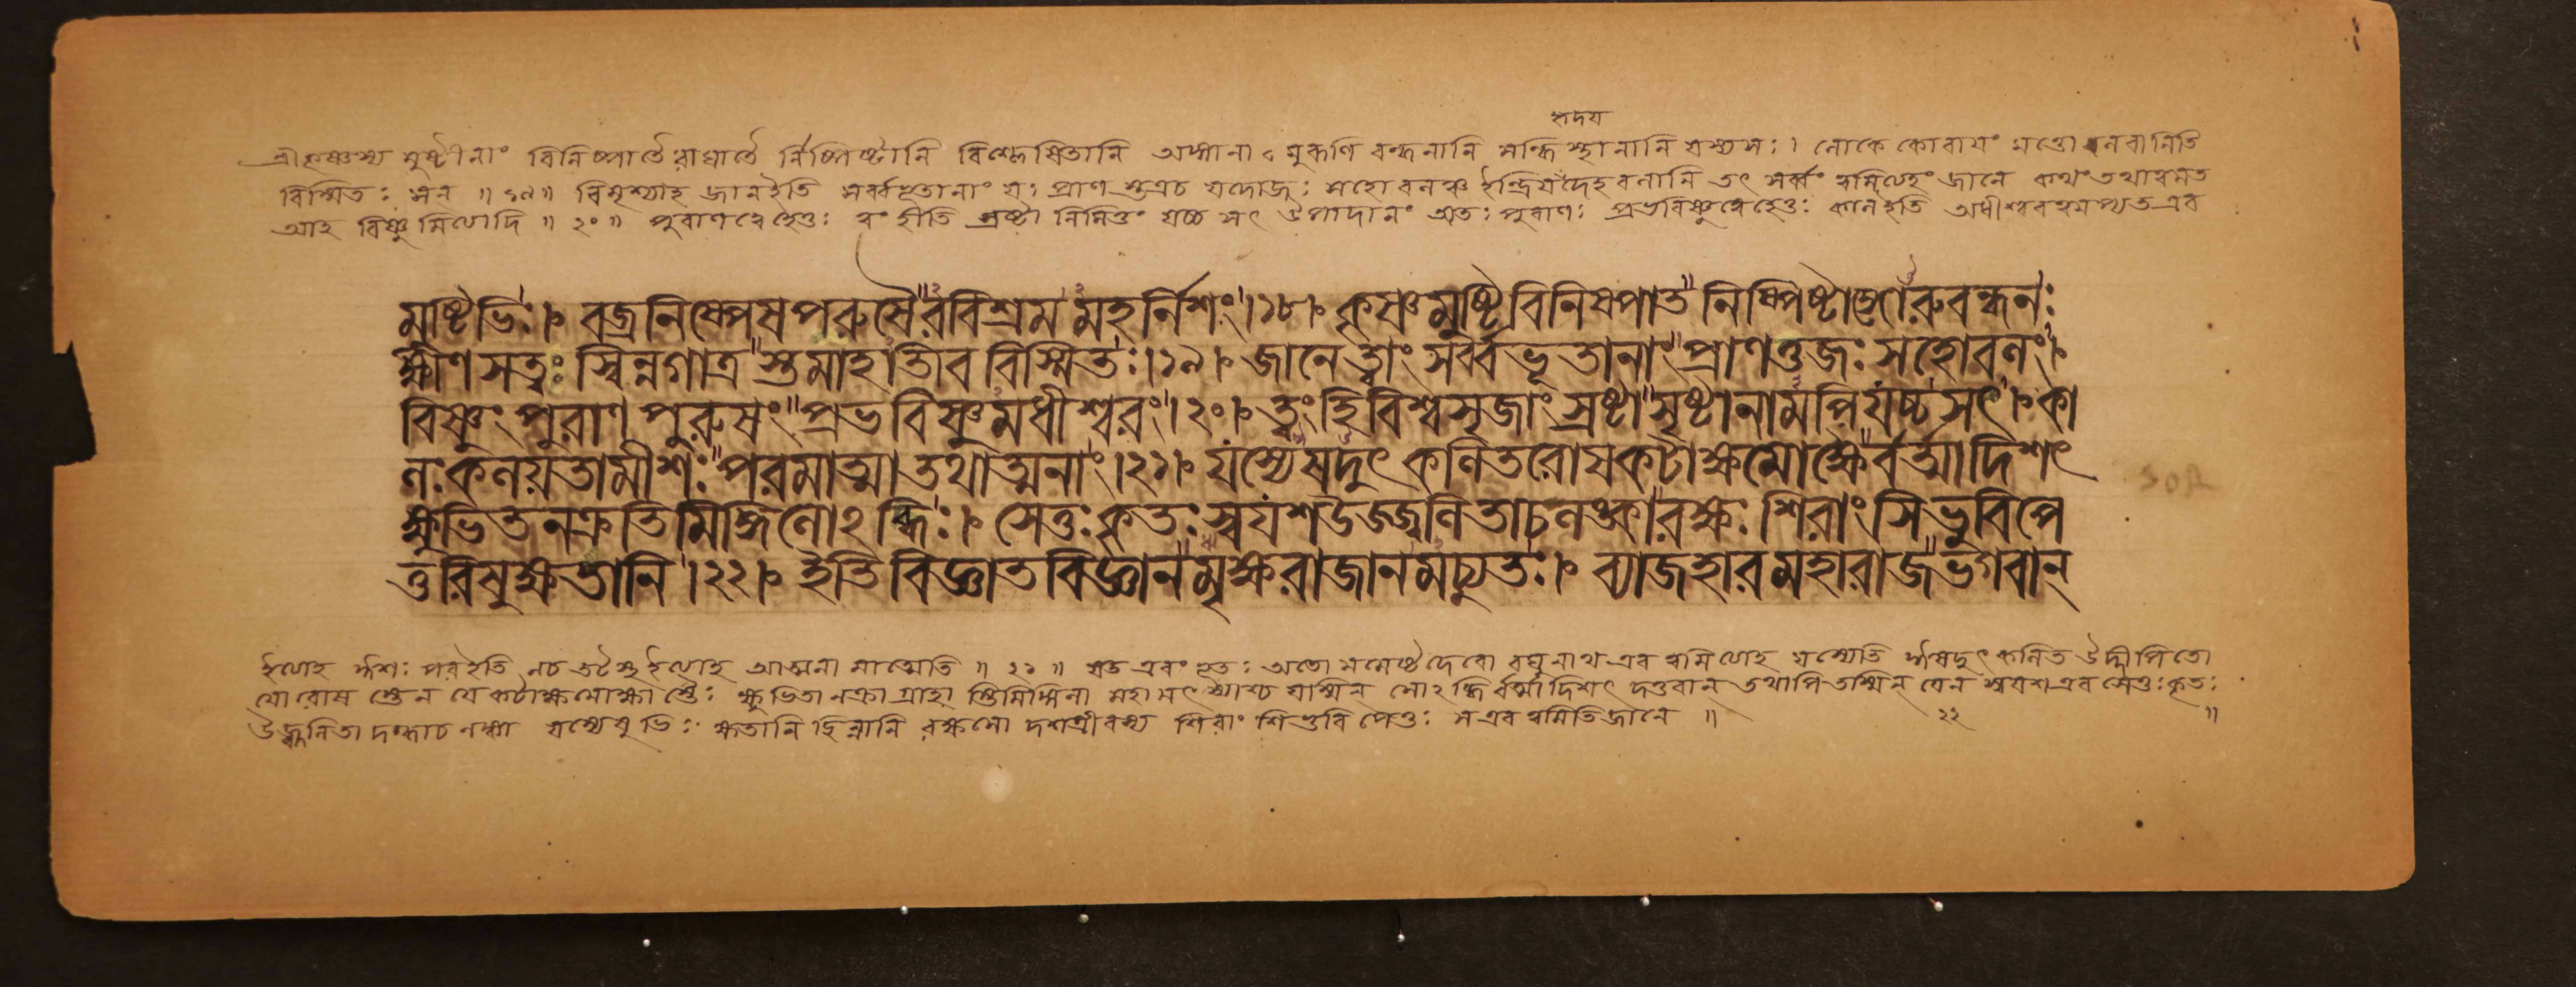 হৃদয
শ্রীকৃষ্ণস্য মুষ্টীনাং বিনিষ্পাতৈ রাঘাতৈ র্নিষ্পিষ্টানি বিশ্লেষিতানি অঙ্গানা বন্ধনানি সন্ধিস্থানানি যস্যসঃ। লোকে কোবাযং মত্তো বলবানিতি
বিস্মিতঃ সন ॥ ১৯॥ বিমৃশ্যাহ জানইতি সর্ব্বভূতানাং যঃ প্রাণ স্তএচ যদোজঃ সহো বলঞ্চ ইন্দ্রিযদেহবলানি তৎ সর্ব্বং ত্বামিত্যহং জানে কথং তথাত্বমত
আহ বিষ্ণুমিত্যাদি ॥ ২০॥ পুরাণত্বেহেতুঃ ত্বং হীতি স্রষ্টা নিমিত্তং যচ্চ সৎ উপাদানং অতঃ পুরাণঃ প্রভবিষ্ণুত্বেহেতুঃ কালইতি অধীশ্বরত্বমপ্যতএব
মুষ্টিভিঃ। বজ্রনিষ্পেষপরুসৈরবিশ্রমমহর্নিশং।১৮। কৃষ্ণমুষ্টিবিনিষপাতনিষ্পিষ্টাঙ্গোরুবন্ধনঃ
ক্ষীণসত্ত্বঃ স্বিন্নগাত্রস্তমাহাতিব বিস্মিতঃ।১৯। জানেত্বাং সর্ব্বভূতানাং প্রাণওজঃ সহোবলং।
বিষ্ণুং পুরাণপুরুষং প্রভবিষ্ণুমধীশ্বরং।২০। ত্বংহিবিশ্বসৃজাং স্রষ্টাসৃষ্টানামপিযচ্চসৎ। কা
লঃকলয়তামীশঃ পরমাত্মাতথাত্মনাং।২১। যস্যেষদুৎকলিতরোষকটাক্ষমোক্ষৈর্বর্ত্মাদিশৎ
ক্ষুভিতনক্রতিমিঙ্গিলোঽব্ধিঃ। সেতুঃকৃতঃ স্বযশউজ্জ্বলিতাচলঙ্কারক্ষঃ শিরাংসিভুবিপে
তুরিষুক্ষতানি।২২। ইতিবিজ্ঞাতবিজ্ঞানমৃক্ষরাজানমচ্যুতঃ। ব্যাজহারমহারাজভগবান্
ইত্যাহ র্ঈশঃ পরইতি নচ তটস্থইত্যাহ আত্মনা মাত্মেতি ॥ ২১ ॥ যত এবং ভূতঃ অতো মমেষ্টদেবো রঘুনাথএব ত্বমিত্যাহ যস্যেতি ঈষদুৎকলিত উদ্দীপিতো
যো রোষ স্তেন যে কটাক্ষমোক্ষা স্তৈঃ ক্ষুভিতা নক্রা গ্রাহা স্তিমিঙ্গিলা মহামৎস্যাশ্চ যস্মিন সোঽব্ধি র্বর্ত্মাদিশৎ দত্তবান্ তথাপি তস্মিন্ যেন স্বযশএব সেতুঃকৃতঃ
উজ্জ্বলিতা দগ্ধাচ লঙ্কা যস্যেষুভিঃ ক্ষতানি ছিন্নানি রক্ষসো দশগ্রীবস্য শিরাংসিভুবিপেতুঃ সএব ত্বমিতিজানে ॥ ২২ ॥